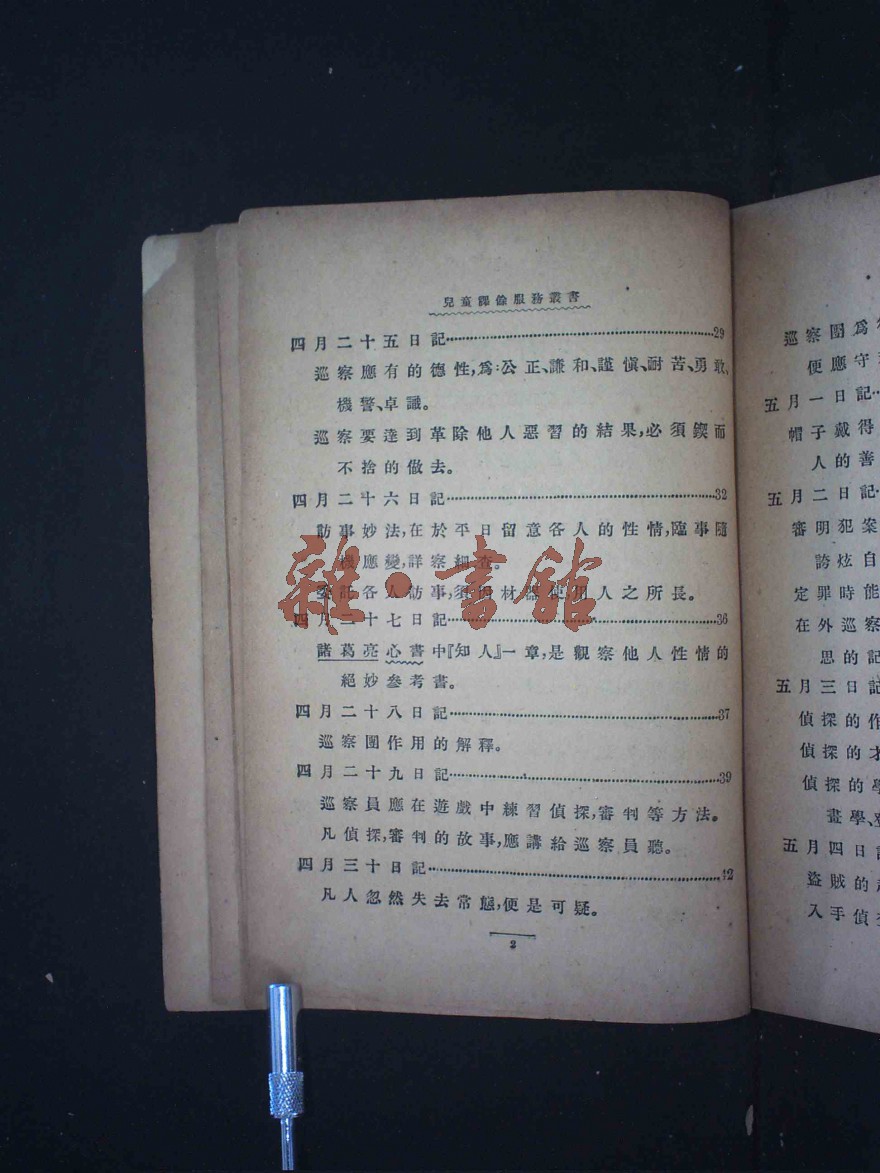 兒童課餘服務叢書
四月二十五日記……29
巡察應有的德性,爲:公正、謙和、謹愼、耐苦、勇敢、
機警、卓識。
巡察要達到革除他人惡習的結果,必須鍥而
不捨的做去。
四月二十六日記……32
訪事妙法,在於平日留意各人的性情,臨事隨
機應變,詳察細查。
委託各人訪事,須 材器使用人之所長。
四月二十七日記……36
諸葛亮心書中『知人』一章,是觀察他人性情的
絕妙參考書。
四月二十八日記……37
巡察團作用的解釋。
四月二十九日記……39
巡察員應在遊戲中練習偵探,審判等方法。
凡偵探,審判的故事,應講給巡察員聽。
四月三十日記……42
凡人忽然失去常態,便是可疑。
2
雜·書館
巡察團爲
便應守
五月一日記
帽子戴得
人的善
五月二日記
審明犯案
誇炫自
定罪時能
在外巡察
思的記
五月三日記
偵探的作
偵探的才
偵探的學
畫學、
五月四日記
盜賊的
入手偵查